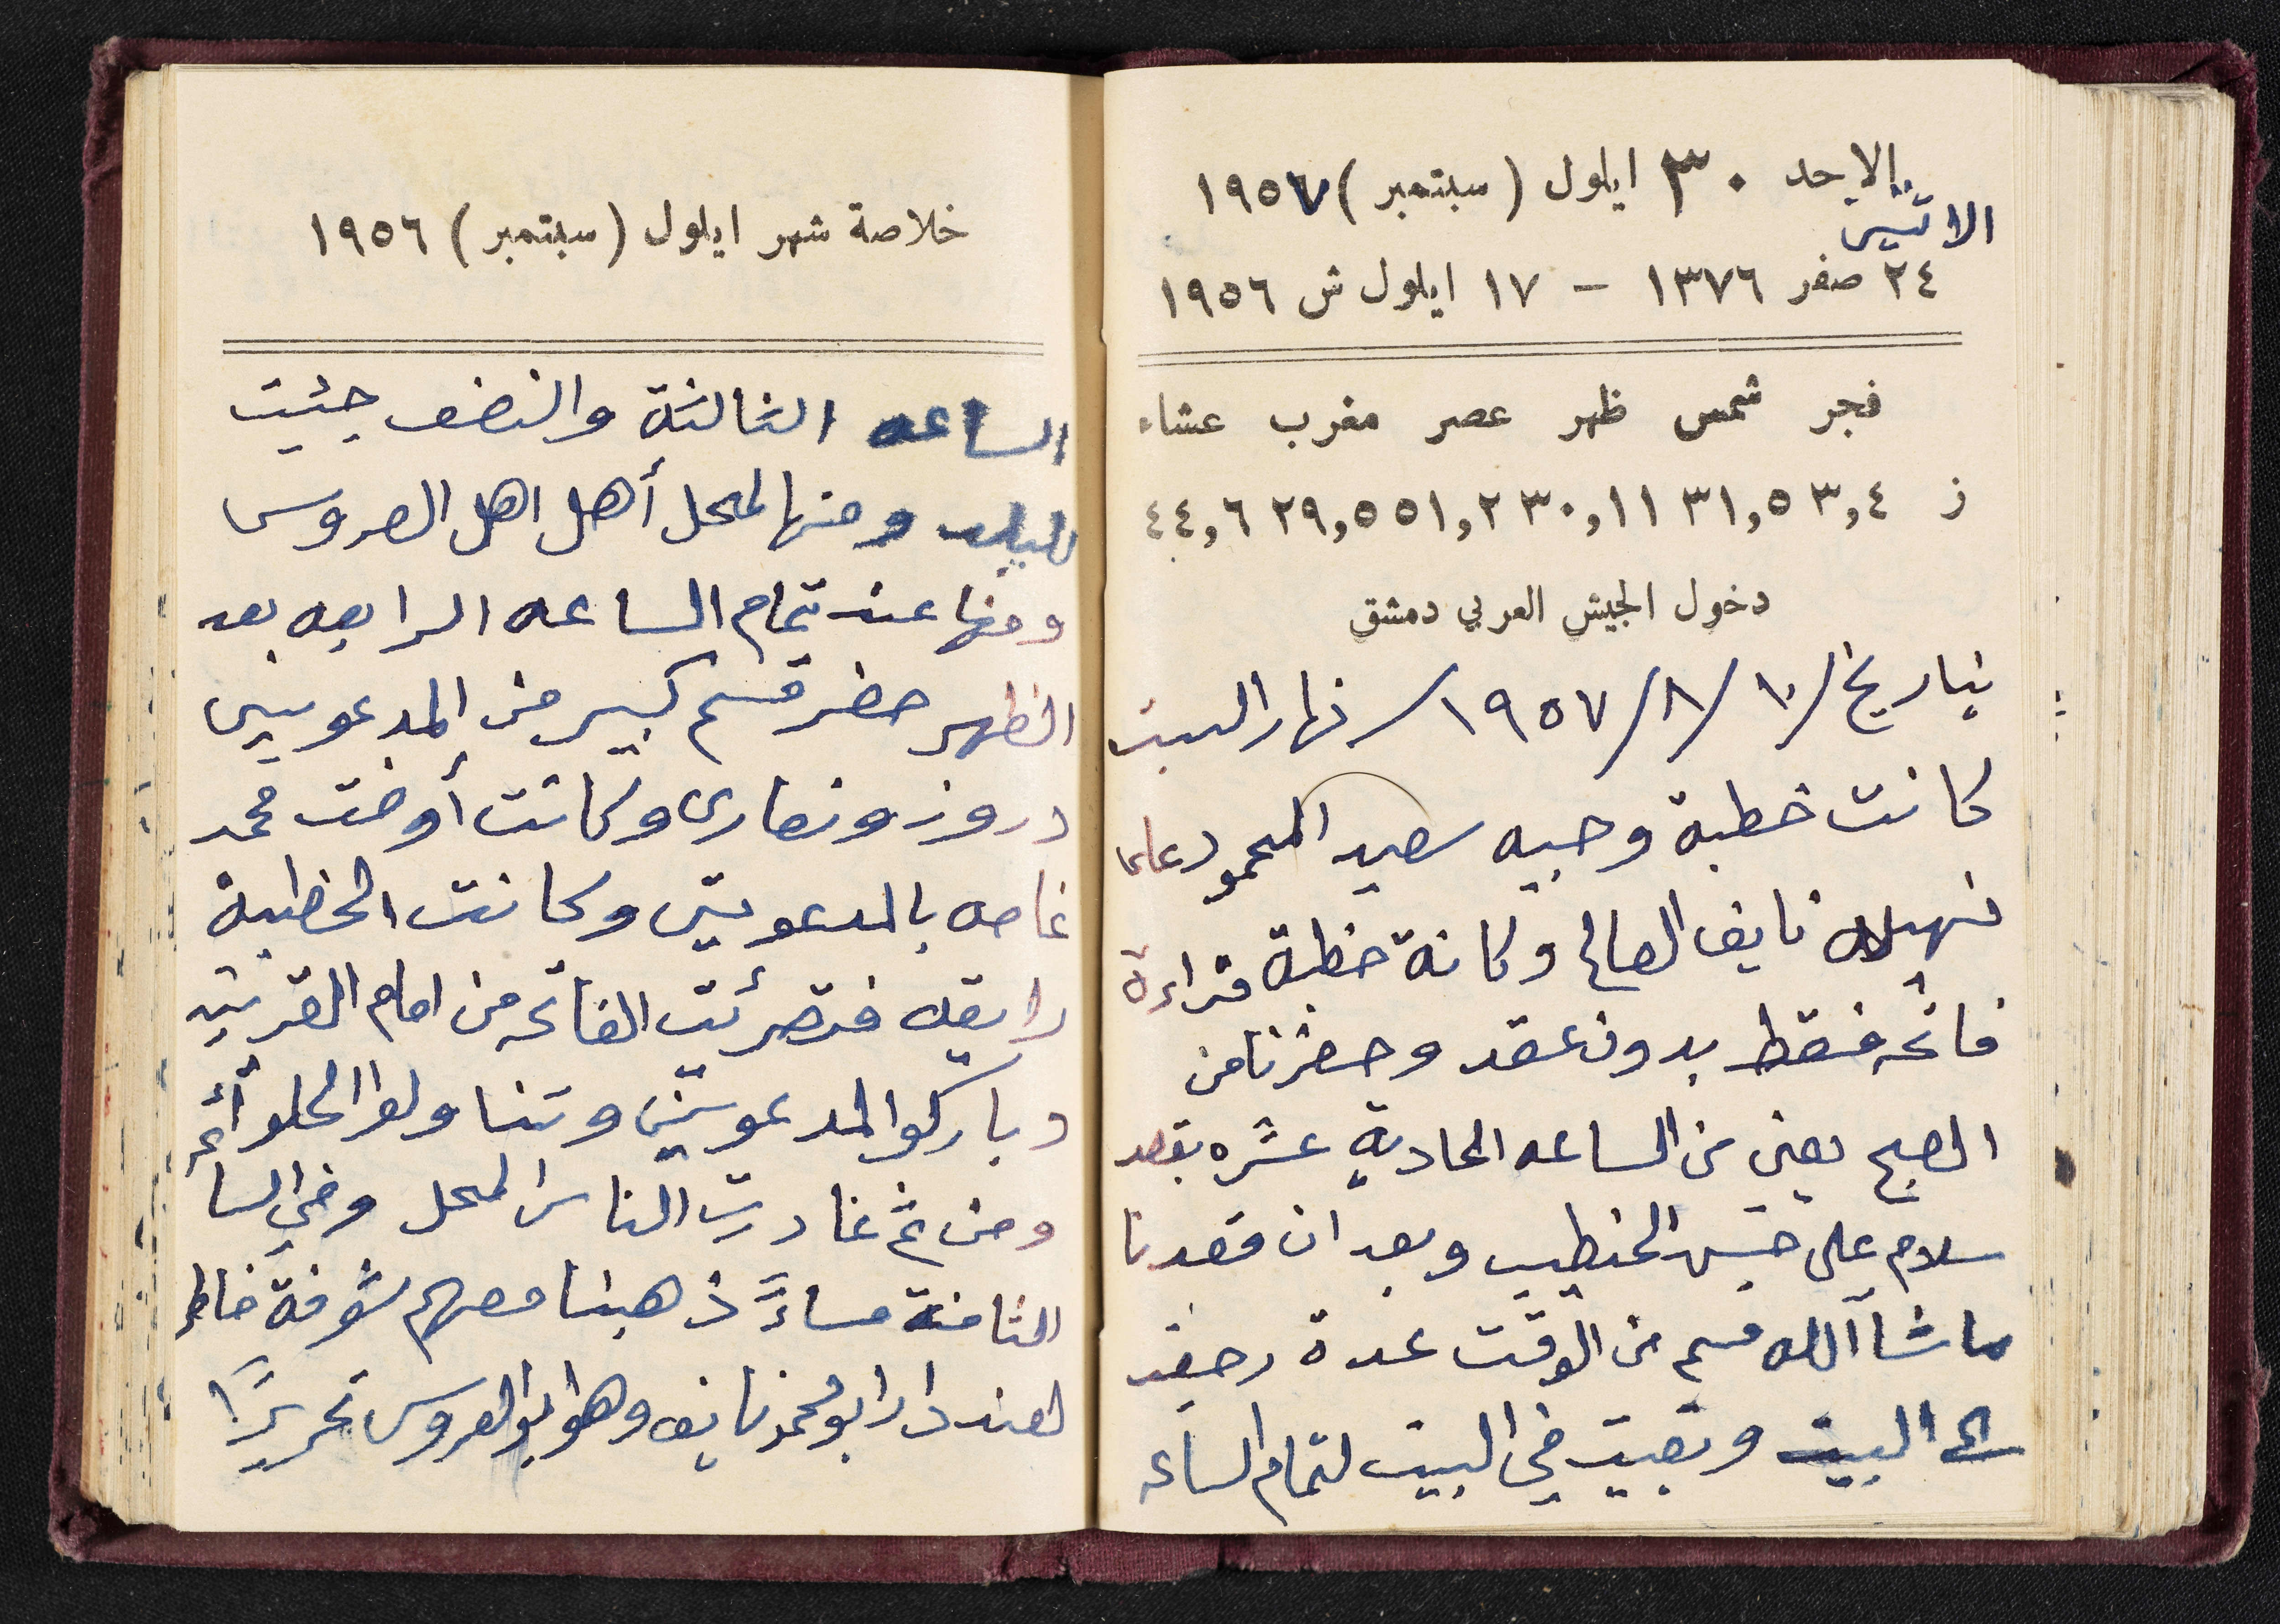 الاحد ٣٠ ايلول (سبتمبر) ١٩٥٧
الاثنين
٢٤ صفر ١٣٧٦ – ١٧ ايلول ش ١٩٥٦
فجر شمس ظهر عصر مغرب عشاء
ز ٣,٤ ٣١,٥ ٣٠,١١ ٥١,٢ ٢٩,٥ ٤٤,٦
دخول الجيش العربي دمشق
بتاريخ /١٠/٨/١٩٥٧/ نهار السبت
كانت خطبة وجيه سعيد المحمود على
نهيله نايف الصالح وكانة خطبة قراءة
فاتحه فقط بدون عقد وحضرنا من
الصبح يعني من الساعه الحادية عشره بقصد
سلام على الخطيب وبعد ان قعدنا
ماشاآلله قسم من الوقت عدة
الى البيت وبقيت في البيت لتمام الساعه
خلاصة شهر ايلول (سبتمبر) ١٩٥٦
الساعه الثالثة والنصف جئيت
للبيت ومنها لمحل أهل اهل العروس
ومنها عند تمام الساعه الرابعه بعد
الظهر حضر قسم كبير من المدعويين
دروز ونصارى وكانت أوضت محمد
غاصه بالمدعويين وكانت الخطبة
رايقه فتقرئت الفاتحه من امام القريتين
وباركوا المدعويين وتناولوا الحلوأئ
ومن ثم غادرت الناس المحل وفي السا
الثامنة مساءً ذهبنا معهم شوفة خاطر
لعند دار ابو محمد نايف وهو ابو العروس تحريرًا